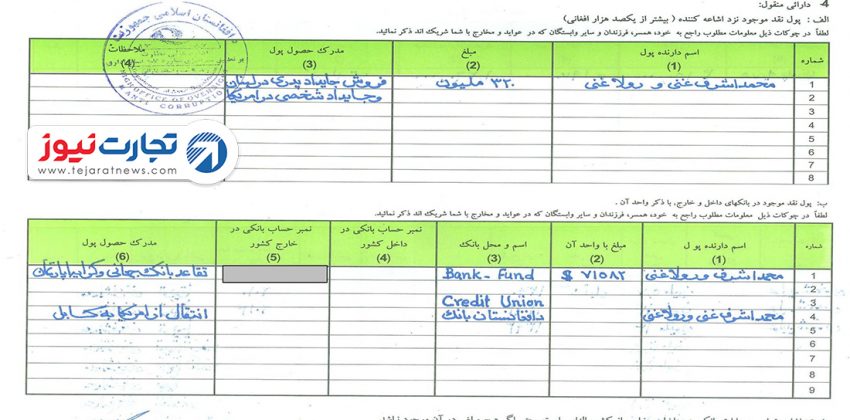 4- دارائی منقول:
الف : پول نقد موجود نزد اشاعه کننده ( بیشتر از یکصد هزار افغانی)
لطفاً در چوکات ذیل معلومات مطلوب راجع به خود، همسر، فرزندان و سایر وابستگان که در عواید و مخارج با شما شریک اند ذکر نمائید.
شماره اسم دارنده پول (1) مبلغ (2) مدرک حصول پول (3) ملاحظات (4)
1 محمد اشرف غنی و رولا غنی ۳۲۰ ملیون فروش جایداد پدری در لبنان
2 و جایداد شخصی در امریکا
3
4
5
6
7
8
تجارت نیوز
www.tejaratnews.com
ب: پول نقد موجود در بانکهای داخل و خارج، با ذکر واحد آن.
لطفاً در چوکات ذیل معلومات مطلوب راجع به خود، همسر، فرزندان و سایر وابستگان که در عواید و مخارج با شما شریک اند ذکر نمائید.
شماره اسم دارنده پول (1) مبلغ با واحد آن (2) اسم و محل بانک (3) نمبر حساب بانکی در داخل کشور (4) نمبر حساب بانکی در خارج کشور (5) مدرک حصول پول (6)
1 محمد اشرف و رولا غنی $ ۷۱۵۸۲ Bank-Fund تقاعد بانک جهانی و کرایه اپارتمان
2
3 Credit Union
4 محمد اشرف غنی و رولا غنی د افغانستان بانک انتقال از امریکا به کابل
5
6
7
8
9